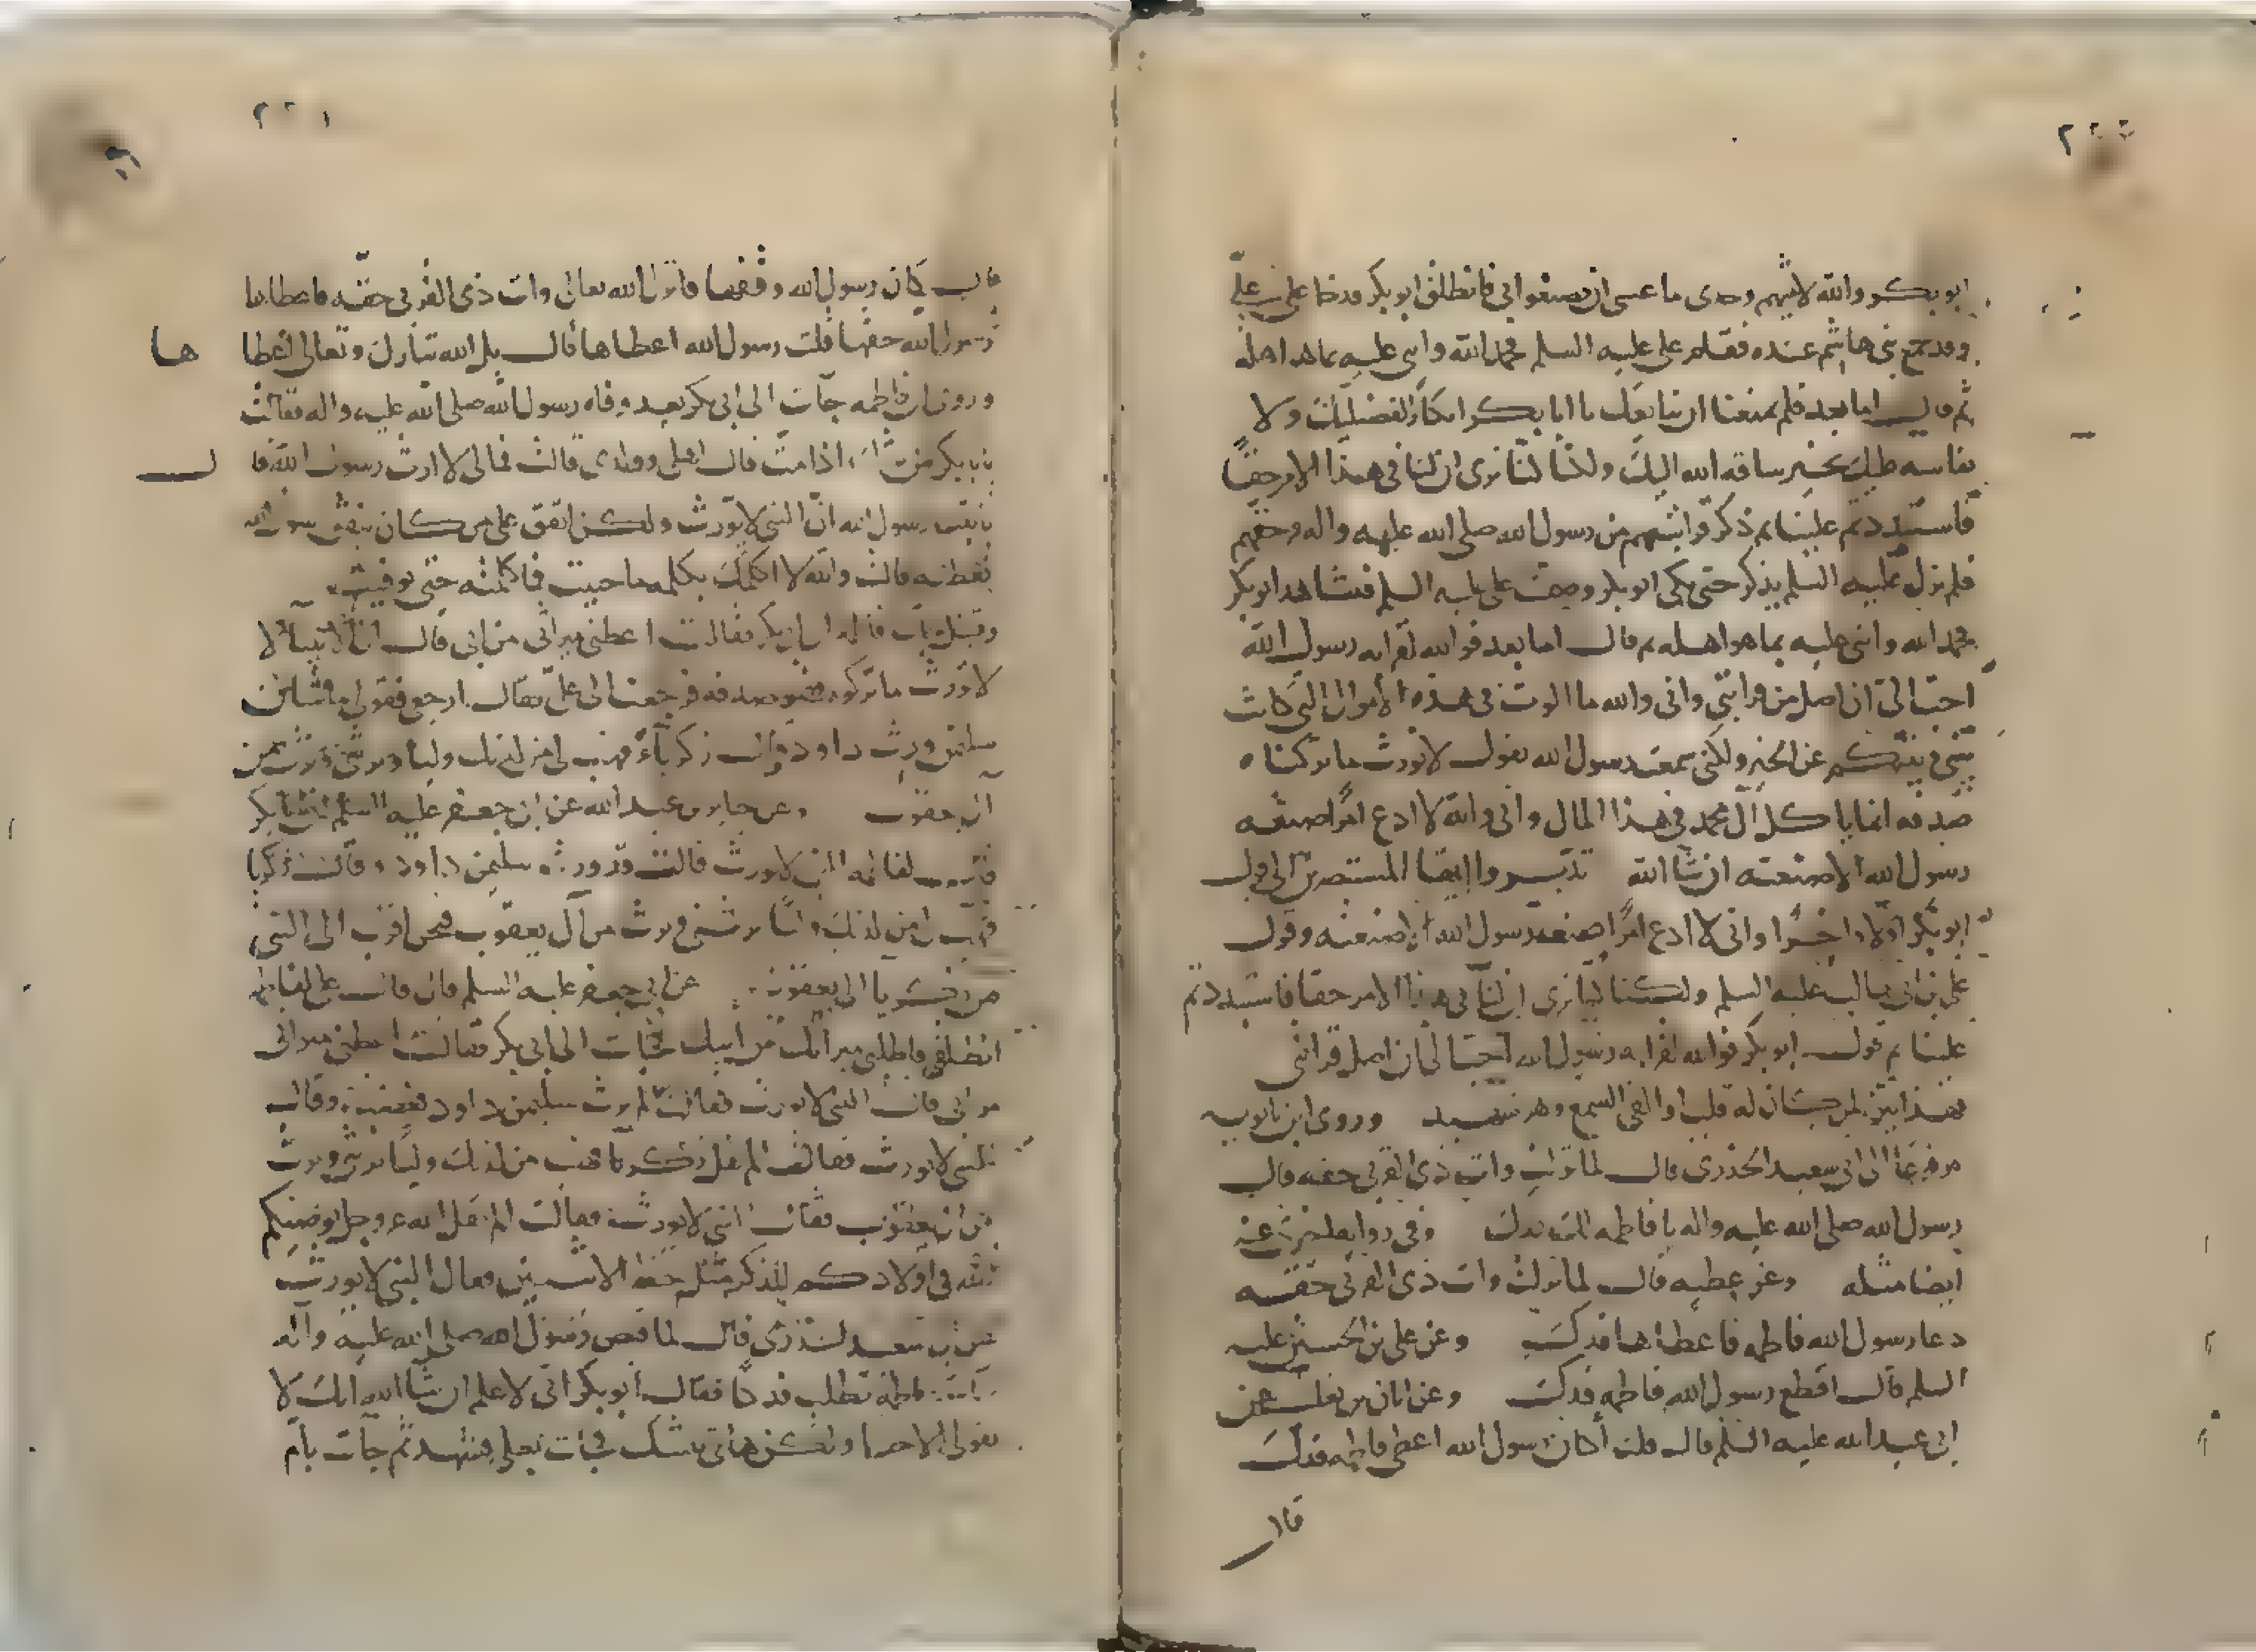 ابو بكر والله لاتينهم وحدى ما عسى ان يصنعوا بى فانطلق ابو بكر فدخل على علي
وقد جمع بنى هاشم عنده فقام على عليه السلم فحمد الله واثنى عليه بما هو اهله
ثم قال اما بعد فلم يمنعنا ان نبايعك يا ابا بكر انكار لفضيلتك ولا
نفاسه عليك بخير ساقه الله اليك ولكنا كنا نرى ان لنا فى هذا الامر حقا
فاستبددتم علينا ثم ذكر قرابتهم من رسول الله صلى الله عليه واله وحقهم
فلم يزل عليه السلم يذكر حتى بكى ابو بكر وصمت على عليه السلم فتشاهد ابو بكر
فحمد الله واثنى عليه بما هو اهله ثم قال اما بعد فو الله لقرابه رسول الله
احب الى ان اصل من قرابتى وانى والله ما الوت فى هذه الأموال التى كانت
بينى وبينكم عن الخير ولكنى سمعت رسول الله يقول لا نورث ما تركناه
صدقه انما ياكل آل محمد فى هذا المال وانى والله لا ادع امرا صنعه
رسول الله الا صنعته ان شا الله تدبروا ايها المستبصرين الى قول
ابو بكر اولا واخرا وانى لا ادع امرا صنعه رسول الله الا صنعته وقول
على بن ابى طالب عليه السلم ولكنا كنا نرى ان لنا فى هذا الامر حقا فاستبددتم
علينا ثم قول ابو بكر فو الله لقرابه رسول الله احب الى ان اصل قرابتى
فهذا بين لمن كان له قلب او القى السمع وهو شهيد وروى ابن بابويه
مرفوعا الى ابى سعيد الخدرى قال لما نزلت وات ذى القربى حقه قال
رسول الله صلى الله عليه واله يا فاطمه لك فدك وفى روايه اخرى عنه
ايضا مثله وعن عطيه قال لما نزلت وات ذى القربى حقه
دعا رسول الله فاطمه فاعطاها فدك وعن على بن الحسين عليه
السلم قال اقطع رسول الله فاطمه فدك وعن ابان بن تغلب عن
ابى عبد الله عليه السلم قال قلت أكان رسول الله اعطى فاطمه فدك
قال
قال كان رسول الله وقفها فانزل الله تعالى وات ذى القربى حقه فاعطاها
رسول الله حقها قلت رسول الله اعطاها قال بل الله تبارك وتعالى اعطاها
وروى ان فاطمه جآت الى ابى بكر بعد وفاه رسول الله صلى الله عليه واله فقالت
يا با بكر من يرثك اذا مت قال اهلى وولدى قالت فما لى لا ارث رسول الله قال
يا بنت رسول الله ان النبى لا يورث ولكن انفق على من كان ينفق رسول الله
قالت والله لا اكلمك بكلمه ما حييت فما كلمته حتى توفيت
وقيل جآت فاطمه ابا بكر فقالت اعطنى ميراثى من ابى قال ان الانبيآء لا
لا تورث ما تركوه فهو صدقه فرجعت الى على فقال ارجعى فقولى ما شان
سليمن ورث داود وقال زكريآء فهب لى من لدنك وليا يرثنى ويرث من
آل يعقوب وعن جابر بن عبد الله عن ابى جعفر عليه السلم ان ابا بكر
قال لفاطمه النبى لا يورث قالت قد ورث سليمن داود وقال زكريا
فهب لى من لدنك وليا يرثنى ويرث من آل يعقوب فنحن اقرب الى النبى
من زكريا الى يعقوب عن ابى جعفر عليه السلم قال قال على لفاطمه
انطلقى فاطلبى ميراثك من ابيك فجآت الى ابى بكر فقالت اعطنى ميراثى
من ابى قال النبى لا يورث فقالت الم يرث سليمن داود فغضب وقال
النبى لا يورث فقالت الم يقل زكريا فهب لى من لدنك وليا يرثنى ويرث
من ال يعقوب فقال النبى لا يورث فقالت الم يقل الله عز وجل يوصيكم
الله فى اولادكم للذكر مثل حظ الانثيين فقال النبى لا يورث
عن ابى سعيد الخدرى قال لما قبض رسول الله صلى الله عليه وآله
جآت فاطمه تطلب فدكا فقال أبو بكر انى لاعلم ان شا الله انك لا
تقولى الا حقا ولكن هاتى بينتك فجآت بعلى فشهد ثم جآت بأم